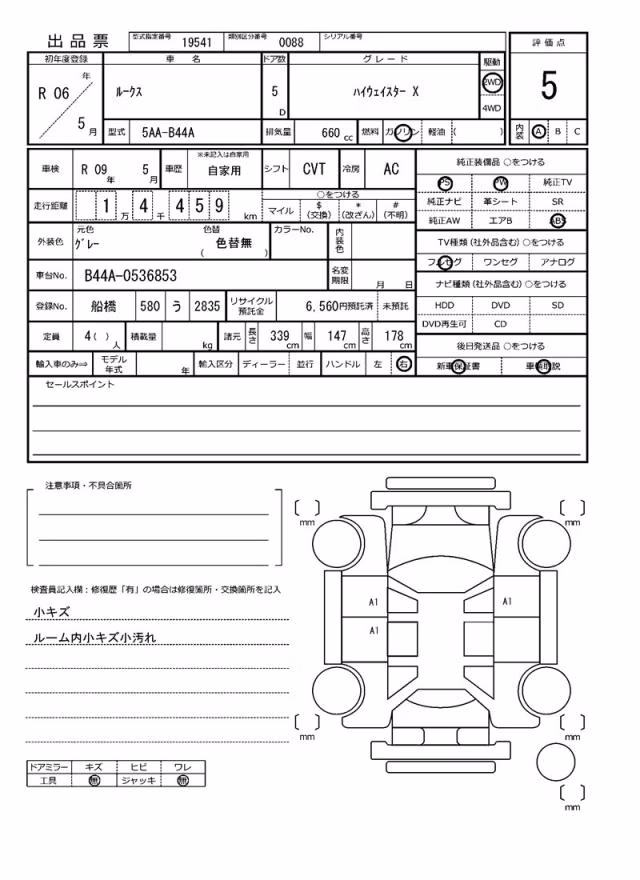 出品票 型式指定番号 19541 類別区分番号 0088 シリアル番号
評価点
初年度登録 車名 ドア数 グレード 駆動
R 06年 5月 ルークス 5D ハイウェイスター X 2WD 4WD
5
型式 5AA-B44A 排気量 660cc 燃料 ガソリン 軽油 ( ) 内装 A B C
車検 R 09年 5月 車歴 ※未記入は自家用 自家用 シフト CVT 冷房 AC
走行距離 1万4千459km ○をつける
マイル $(交換) *(改ざん) #(不明)
外装色 元色 グレー 色替 色替無 ( ) カラーNo. 内装色
車台No. B44A-0536853 名変期限 月 日
登録No. 船橋 580 う 2835 リサイクル預託金 6,560円預託済 未預託
定員 4( )人 積載量 kg 諸元 長さ 339cm 幅 147cm 高さ 178cm
輸入車のみ⇒ モデル年式 年 輸入区分 ディーラー 並行 ハンドル 左 右
純正装備品 ○をつける
PS PW 純正TV
純正ナビ 革シート SR
純正AW エアB ABS
TV種類 (社外品含む) ○をつける
フルセグ ワンセグ アナログ
ナビ種類 (社外品含む) ○をつける
HDD DVD SD
DVD再生可 CD
後日発送品 ○をつける
新車保証書 車輌取説
セールスポイント
注意事項・不具合箇所
検査員記入欄：修復歴「有」の場合は修復箇所・交換箇所を記入
小キズ
ルーム内小キズ小汚れ
ドアミラー キズ ヒビ ワレ
工具 無 ジャッキ 無
mm mm
A1 A1
A1
mm mm
mm